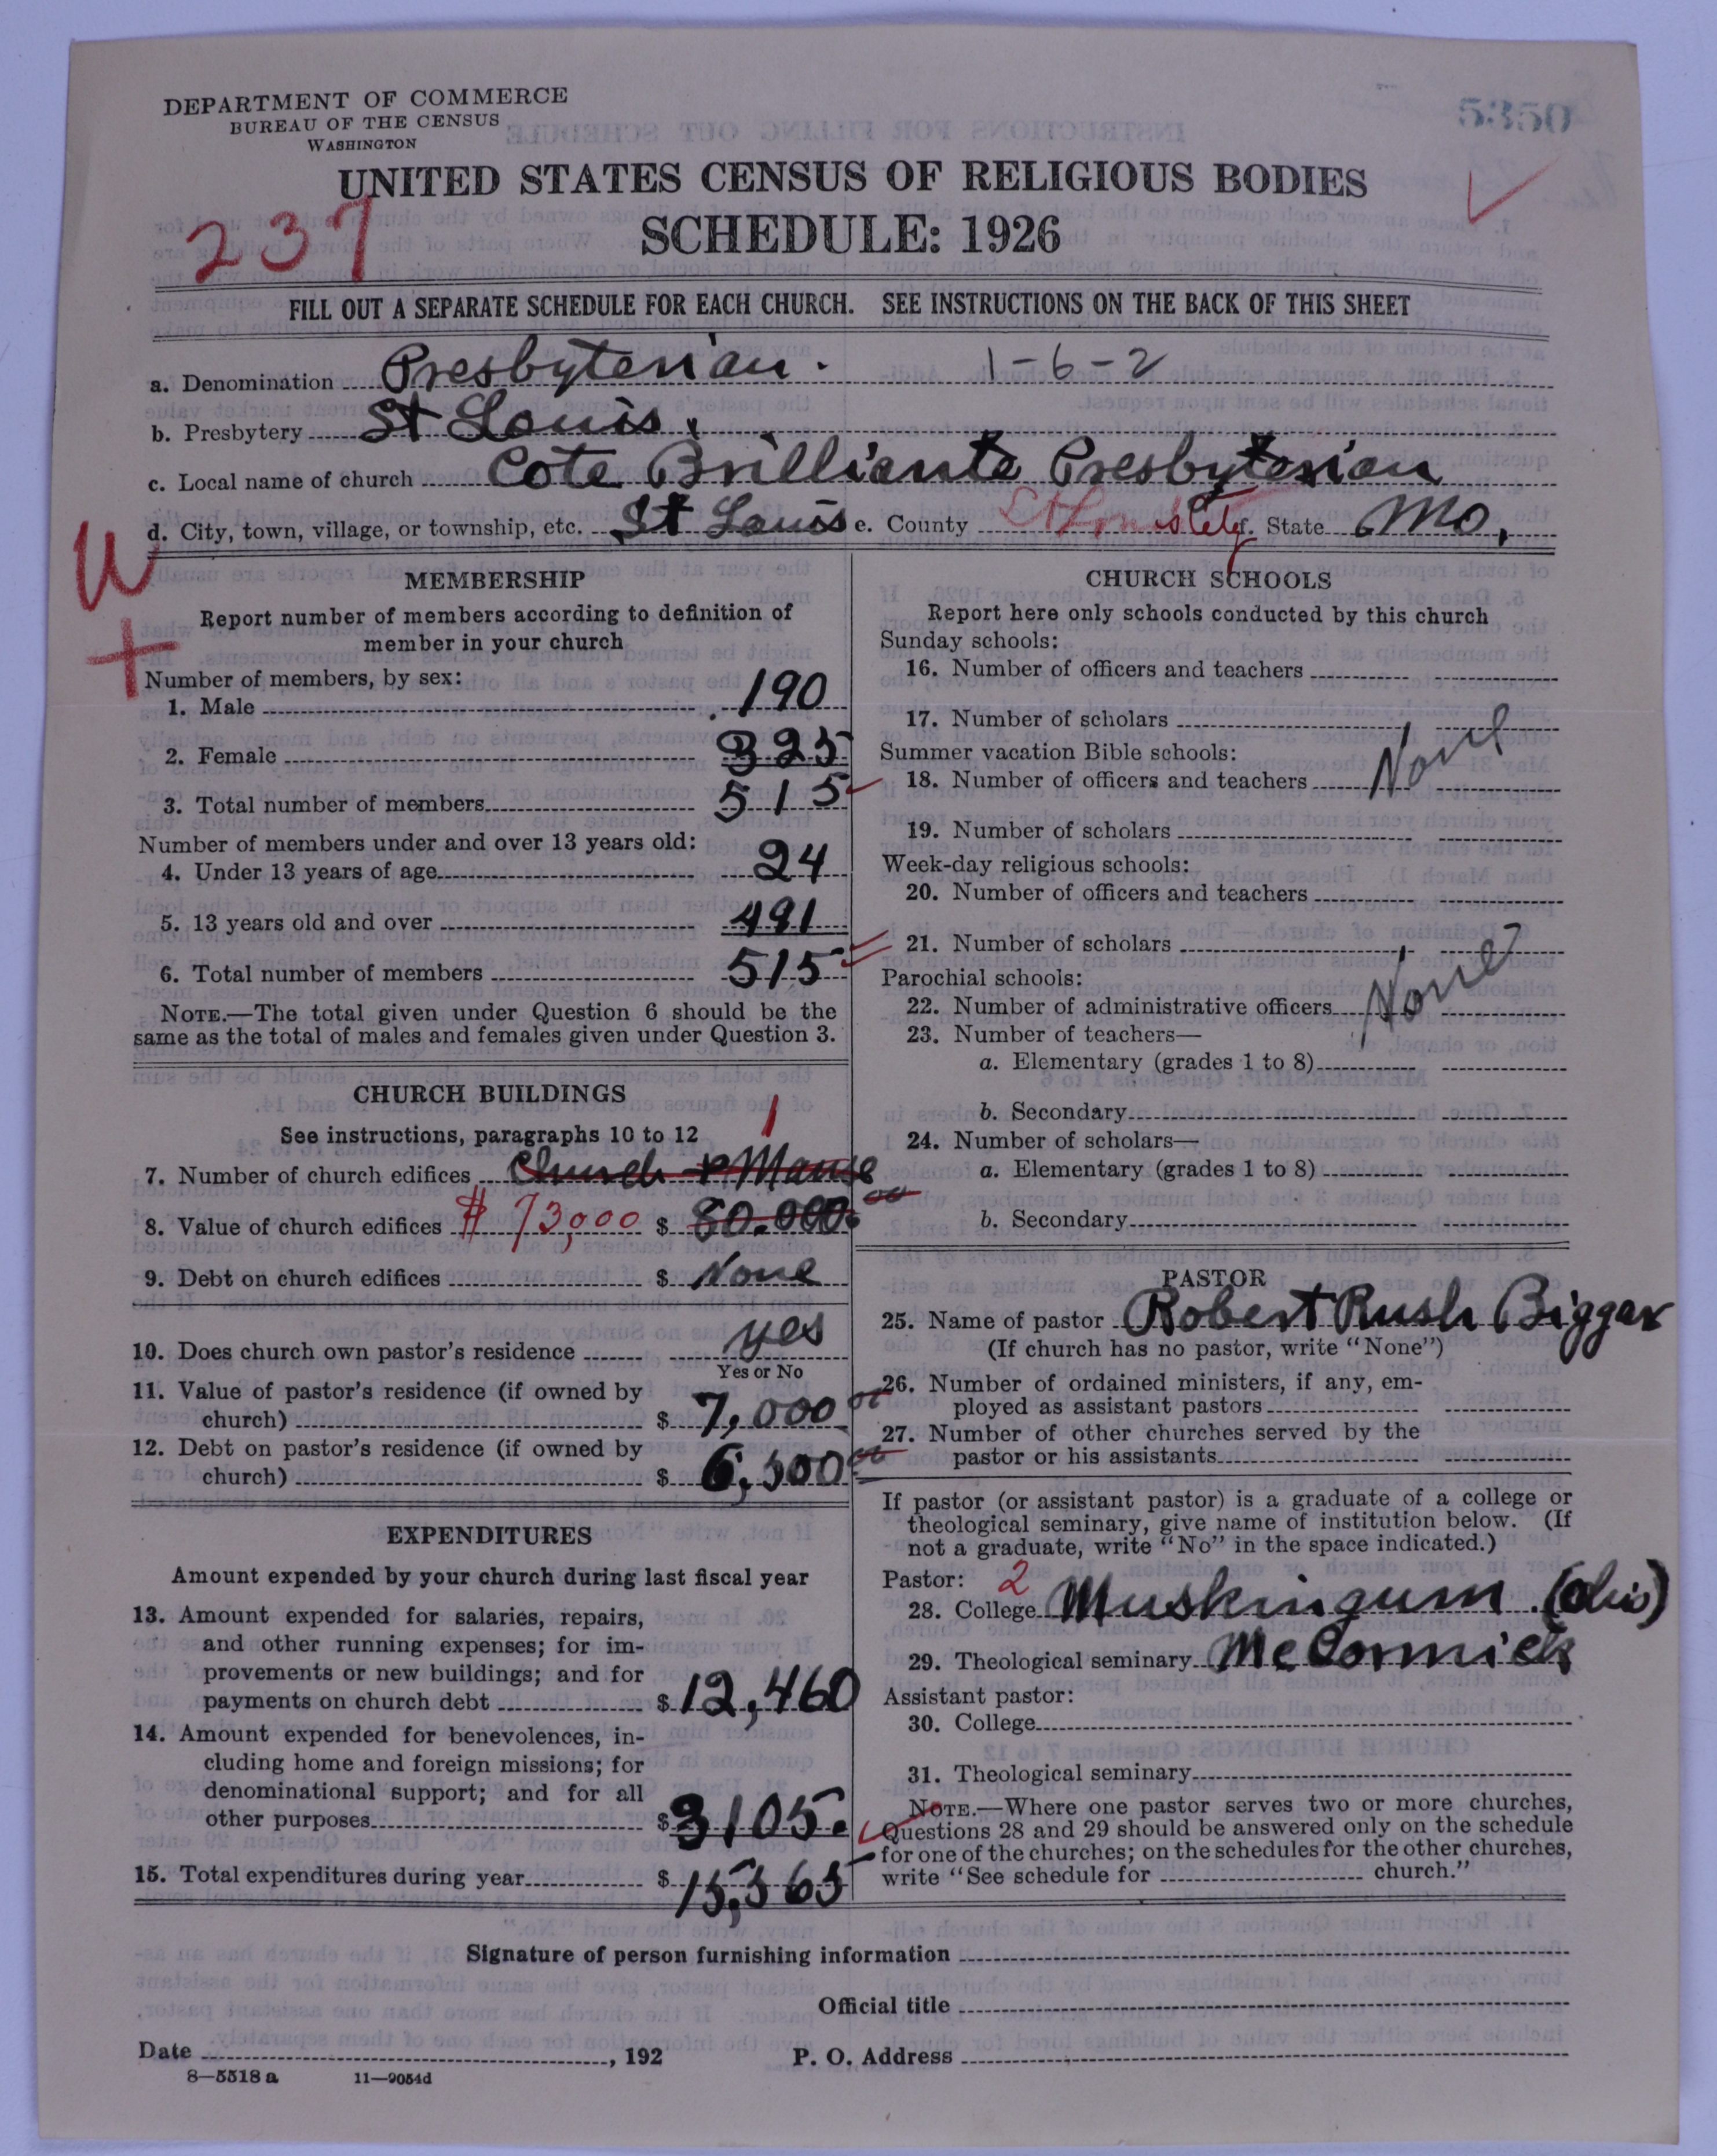 DEPARTMENT OF COMMERCE
BUREAU OF THE CENSUS
WASHINGTON
5350
UNITED STATES CENSUS OF RELIGIOUS BODIES
SCHEDULE: 1926
237
FILL OUT A SEPARATE SCHEDULE FOR EACH CHURCH. SEE INSTRUCTIONS ON THE BACK OF THIS SHEET
a. Denomination Presbyterian. 1-6-2
b. Presbytery St Louis.
c. Local name of church Cote Brilliante Presbyterian
d. City, town, village, or township, etc. St Louis e. County St Louis City f. State Mo.
W
+
MEMBERSHIP
Report number of members according to definition of
member in your church
Number of members, by sex:
1. Male 190
2. Female 325
3. Total number of members 515
Number of members under and over 13 years old:
4. Under 13 years of age 24
5. 13 years old and over 491
6. Total number of members 515
NOTE.—The total given under Question 6 should be the
same as the total of males and females given under Question 3.
CHURCH BUILDINGS
See instructions, paragraphs 10 to 12
1
7. Number of church edifices Church & Manse
8. Value of church edifices $ 73,000 $ 80.000.00
9. Debt on church edifices $ None
10. Does church own pastor's residence yes
Yes or No
11. Value of pastor's residence (if owned by
church) $ 7,000 00
12. Debt on pastor's residence (if owned by
church) $ 6,500 00
EXPENDITURES
Amount expended by your church during last fiscal year
13. Amount expended for salaries, repairs,
and other running expenses; for im-
provements or new buildings; and for
payments on church debt $ 12,460
14. Amount expended for benevolences, in-
cluding home and foreign missions; for
denominational support; and for all
other purposes $ 3105.
15. Total expenditures during year $ 15,565
CHURCH SCHOOLS
Report here only schools conducted by this church
Sunday schools:
16. Number of officers and teachers
17. Number of scholars
Summer vacation Bible schools:
18. Number of officers and teachers None
19. Number of scholars
Week-day religious schools:
20. Number of officers and teachers
21. Number of scholars
Parochial schools:
22. Number of administrative officers None
23. Number of teachers—
a. Elementary (grades 1 to 8)
b. Secondary
24. Number of scholars—
a. Elementary (grades 1 to 8)
b. Secondary
PASTOR
25. Name of pastor Robert Rush Biggar
(If church has no pastor, write "None")
26. Number of ordained ministers, if any, em-
ployed as assistant pastors
27. Number of other churches served by the
pastor or his assistants
If pastor (or assistant pastor) is a graduate of a college or
theological seminary, give name of institution below. (If
not a graduate, write "No" in the space indicated.)
Pastor: 2
28. College Muskingum (Ohio)
29. Theological seminary McCormick
Assistant pastor:
30. College
31. Theological seminary
NOTE.—Where one pastor serves two or more churches,
Questions 28 and 29 should be answered only on the schedule
for one of the churches; on the schedules for the other churches,
write "See schedule for church."
Signature of person furnishing information
Official title
Date , 192 P. O. Address
8—5518 a 11—9054d